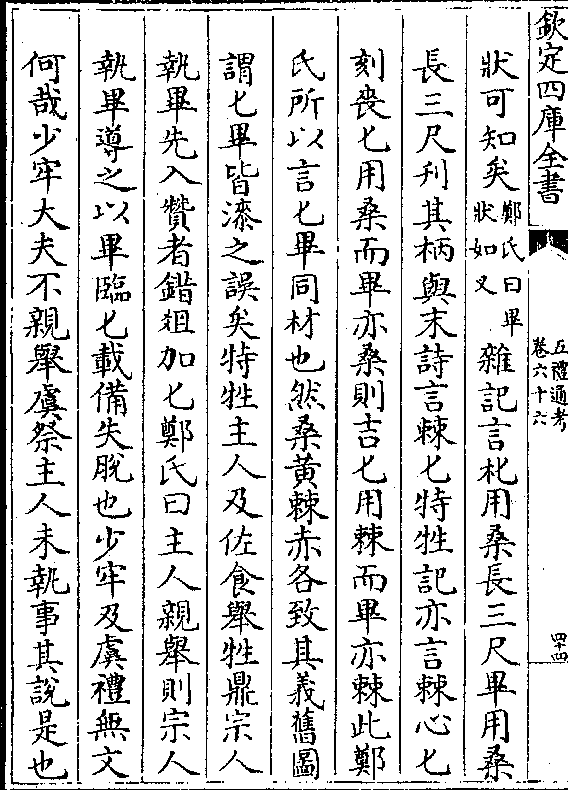 欽定四庫全書
五禮通考
卷六十六
四十四
狀可知矣鄭氏曰畢狀如叉雜記言朼用桑長三尺畢用桑
長三尺刋其柄與末詩言棘匕特牲記亦言棘心匕
刻喪匕用桑而畢亦桑則吉匕用棘而畢亦棘此鄭
氏所以言匕畢同材也然桑黄棘赤各致其義舊圖
謂匕畢皆漆之誤矣特牲主人及佐食舉牲鼎宗人
執畢先入贊者錯俎加匕鄭氏曰主人親舉則宗人
執畢導之以畢臨匕載備失脫也少牢及虞禮無文
何哉少牢大夫不親舉虞祭主人未執事其說是也